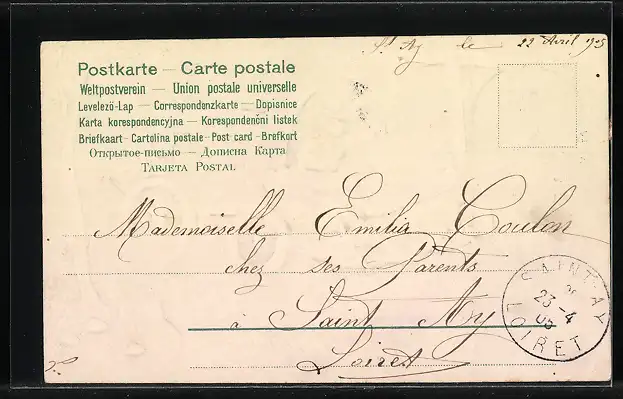 St Ay le 22 Avril 1905
Postkarte — Carte postale
Weltpostverein — Union postale universelle
Levelező-Lap — Correspondenzkarte — Dopisnice
Karta korespondencyjna — Korespondenční listek
Briefkaart - Cartolina postale - Post card - Brefkort
Открытое-письмо — Дописна Карта
TARJETA POSTAL
Mademoiselle Emilia Coulon
chez ses Parents
à Saint Ay
Loiret
SAINT-AY
23 -4
05
LOIRET